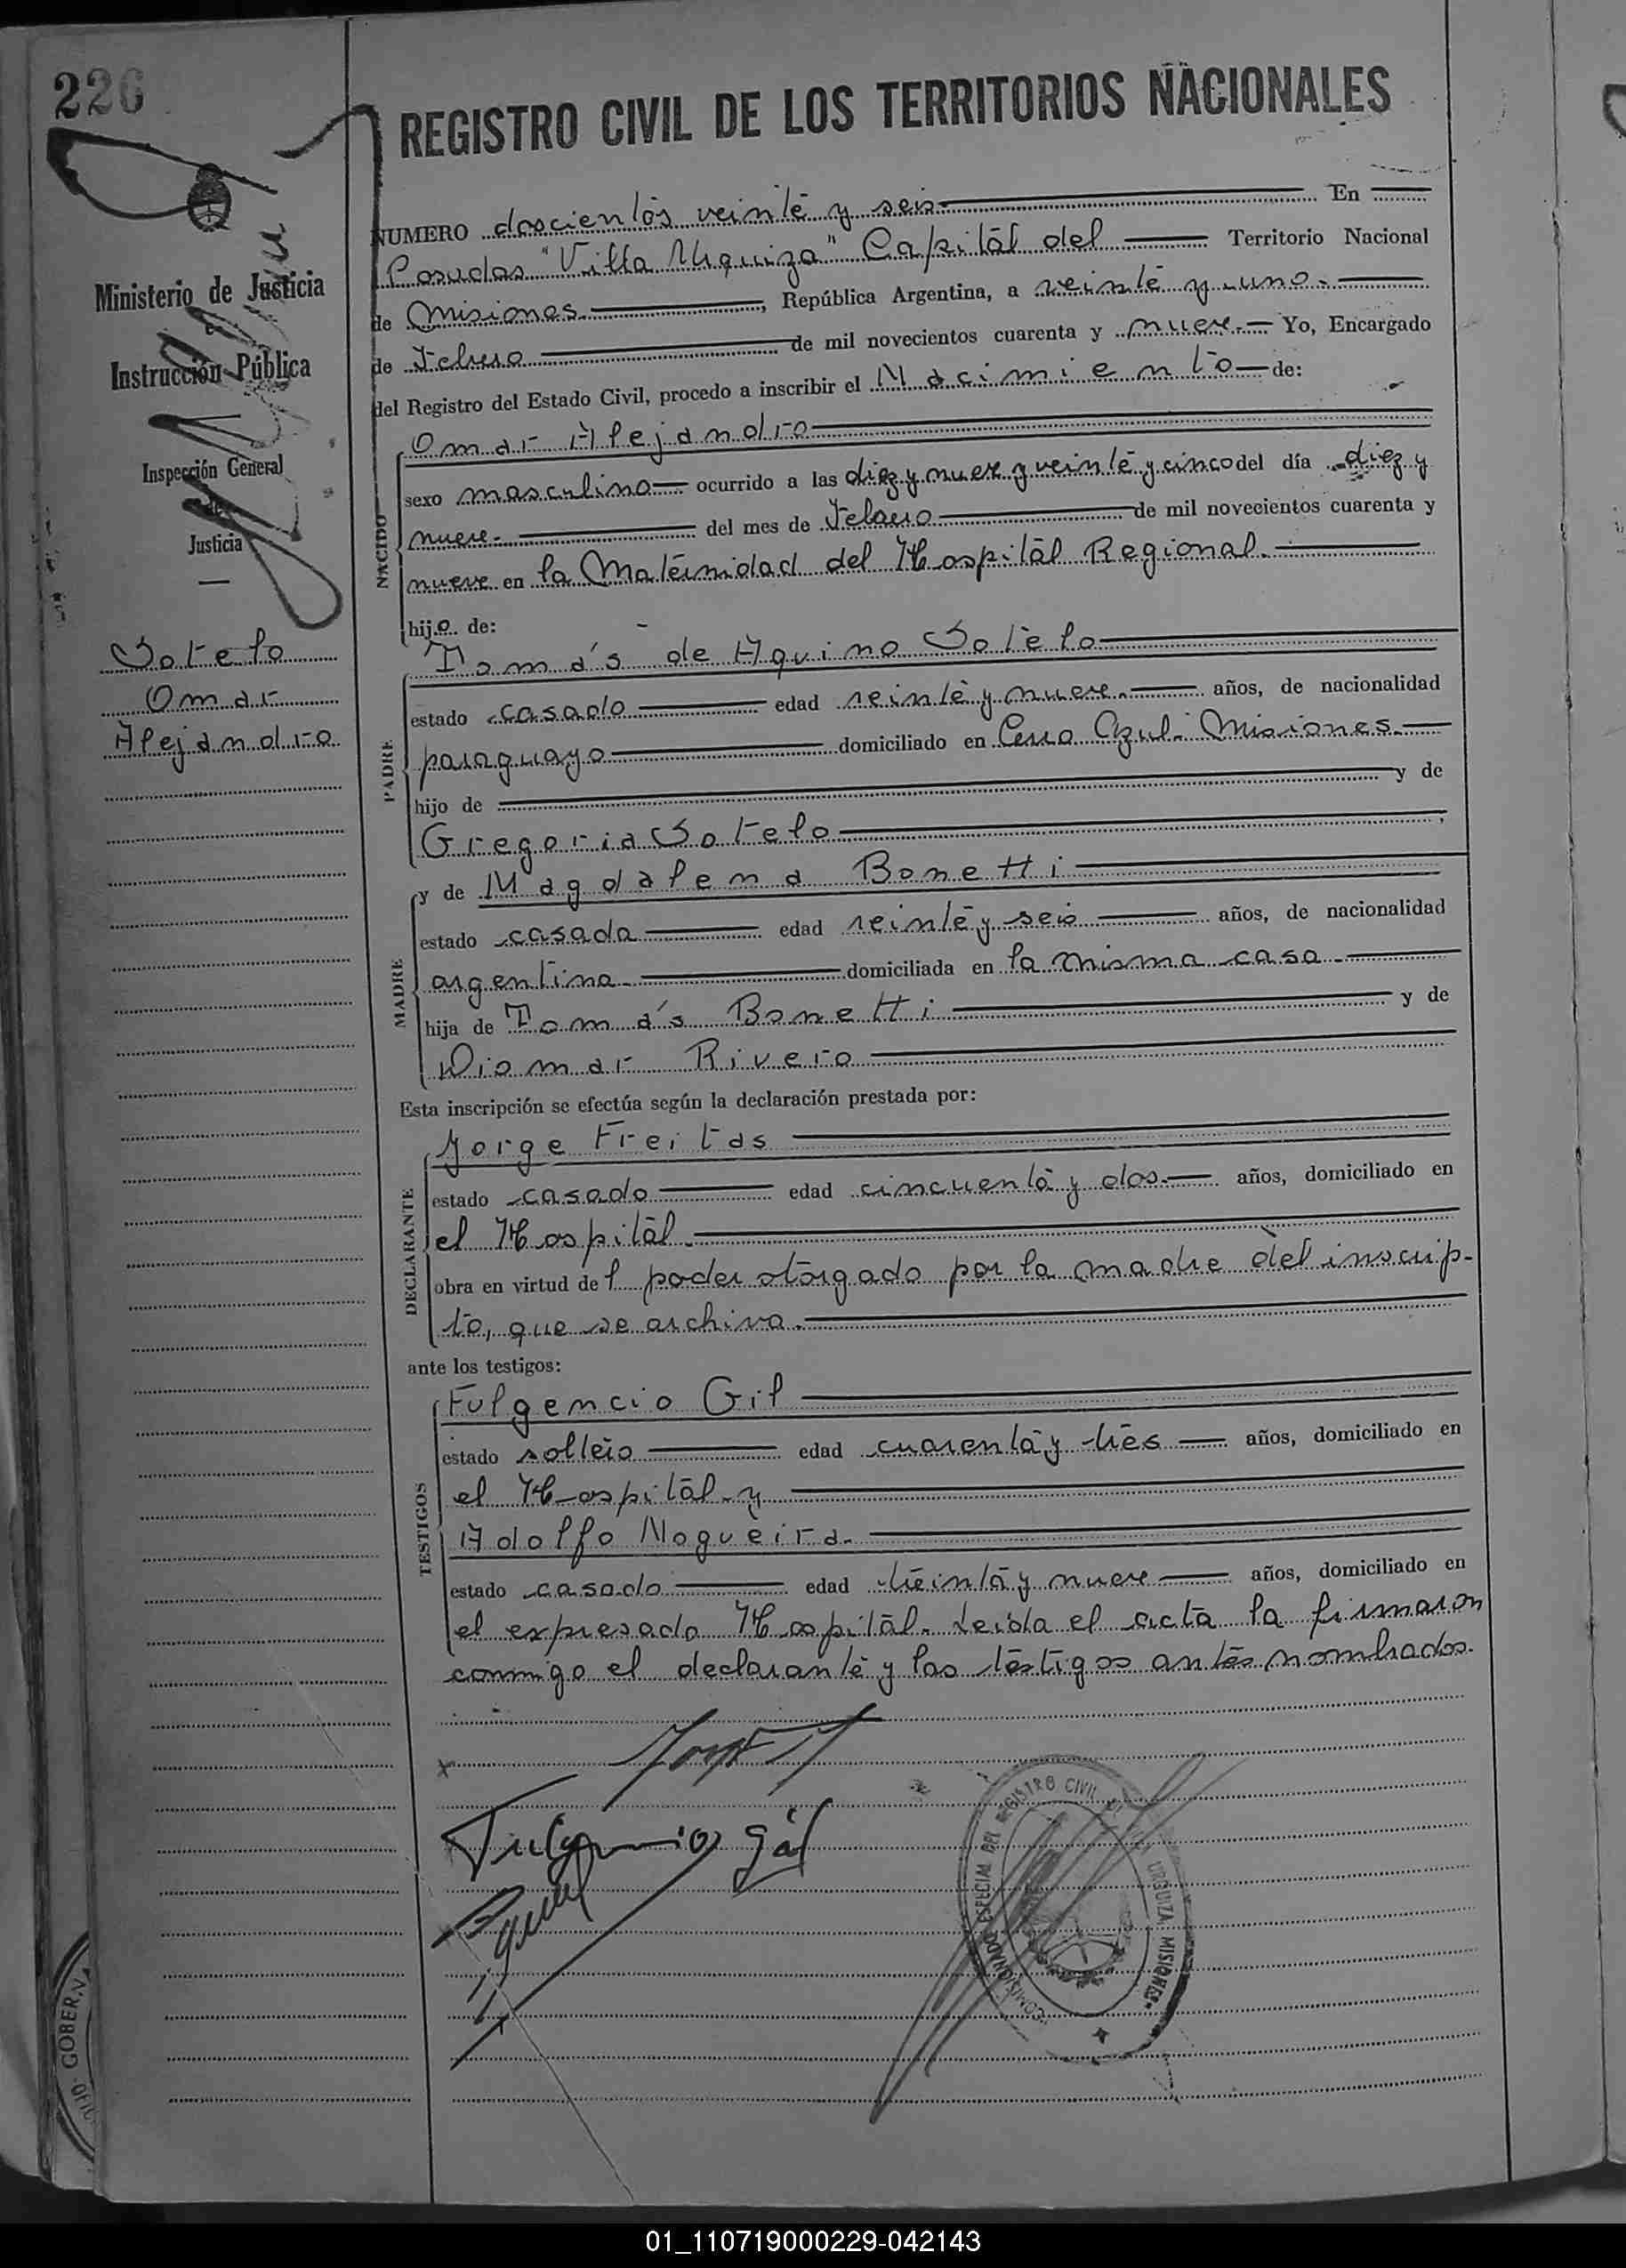 226
REGISTRO CIVIL DE LOS TERRITORIOS NACIONALES
Ministerio de Justicia
e
Instrucción Pública
Inspección General
de
Justicia
Sotelo
Omar
Alejandro
NUMERO doscientos veinte y seis En
Posadas "Villa Urquiza" Capital del Territorio Nacional
de Misiones, República Argentina, a veinte y uno.
de Febrero de mil novecientos cuarenta y nueve. Yo, Encargado
del Registro del Estado Civil, procedo a inscribir el Nacimiento de:
NACIDO
Omar Alejandro
sexo masculino ocurrido a las diez y nueve y veinte y cinco del día diez y
nueve. del mes de Febrero de mil novecientos cuarenta y
nueve en la Maternidad del Hospital Regional.
hijo de:
PADRE
Tomás de Aquino Sotelo
estado casado edad veinte y nueve. años, de nacionalidad
paraguayo domiciliado en Cerro Azul. Misiones.
hijo de y de
Gregoria Sotelo,
MADRE
y de Magdalena Bonetti
estado casada edad veinte y seis años, de nacionalidad
argentina. domiciliada en la misma casa.
hija de Tomás Bonetti y de
Diomar Rivero
Esta inscripción se efectúa según la declaración prestada por:
DECLARANTE
Jorge Freitas
estado casado edad cincuenta y dos. años, domiciliado en
el Hospital.
obra en virtud del poder otorgado por la madre del inscrip-
to, que se archiva.
ante los testigos:
TESTIGOS
Fulgencio Gil
estado soltero edad cuarenta y tres años, domiciliado en
el Hospital. y
Adolfo Nogueira.
estado casado edad treinta y nueve años, domiciliado en
el expresado Hospital. Leida el acta la firmaron
conmigo el declarante y los testigos antes nombrados.
Fulgencio Gil
COMISIONADO ESPECIAL DEL REGISTRO CIVIL
URQUIZA MISIONES
GOBERN
01_110719000229-042143